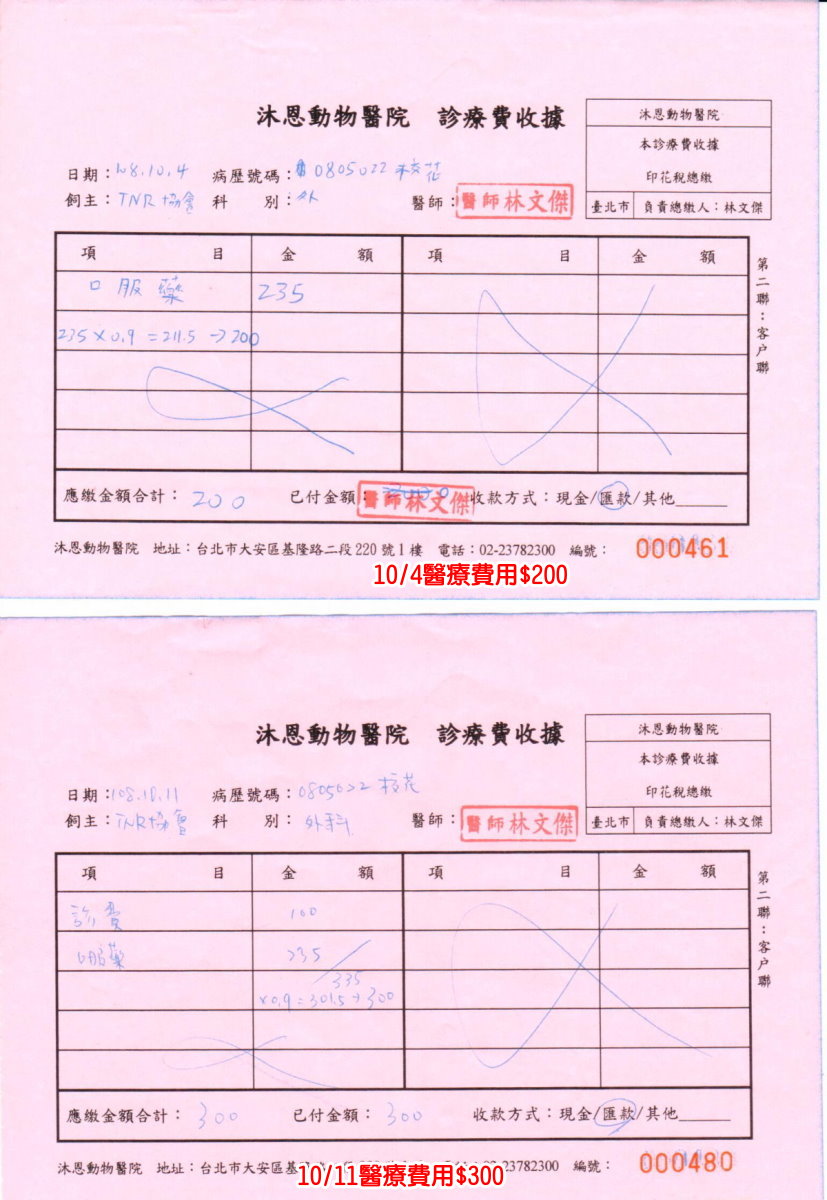 沐恩動物醫院 診療費收據
沐恩動物醫院
本診療費收據
印花稅總繳
臺北市 負責總繳人：林文傑
日期：108.10.4 病歷號碼：0805022 校花
飼主：TNR協會 科 別：外 醫師：醫師林文傑
項 目 金 額 項 目 金 額
口服藥 235
235×0.9=211.5→200
第二聯：客户聯
應繳金額合計：200 已付金額：醫師林文傑 收款方式：現金/匯款/其他
沐恩動物醫院 地址：台北市大安區基隆路二段220號1樓 電話：02-23782300 編號：000461
10/4醫療費用$200
沐恩動物醫院 診療費收據
沐恩動物醫院
本診療費收據
印花稅總繳
臺北市 負責總繳人：林文傑
日期：108.10.11 病歷號碼：0805022 校花
飼主：TNR協會 科 別：外科 醫師：醫師林文傑
項 目 金 額 項 目 金 額
診費 100
口服藥 235
335
×0.9=301.5→300
第二聯：客户聯
應繳金額合計：300 已付金額：300 收款方式：現金/匯款/其他
沐恩動物醫院 地址：台北市大安區基 23782300 編號：000480
10/11醫療費用$300